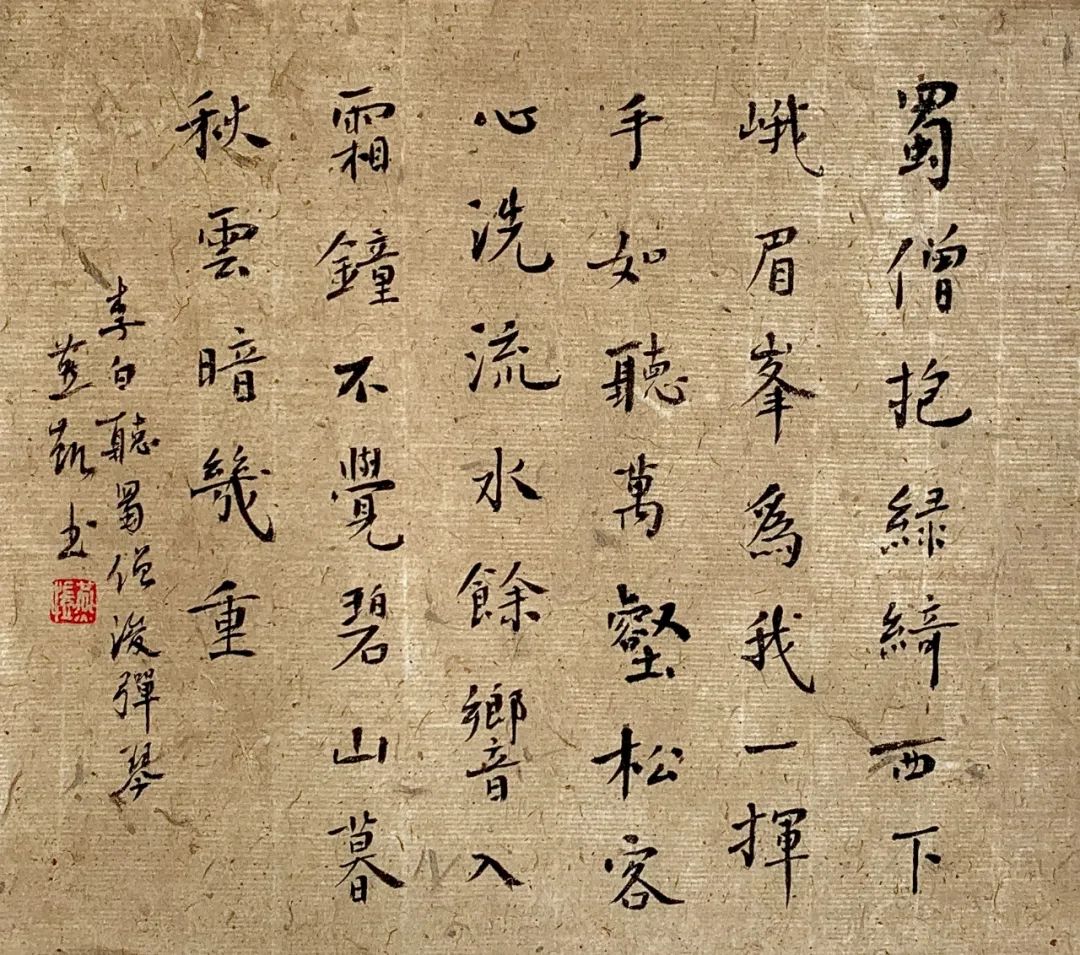 蜀僧抱緑綺西下
峨眉峯爲我一揮
手如聽萬壑松客
心洗流水餘響入
霜鐘不覺碧山暮
秋雲暗幾重
李白聽蜀僧浚彈琴
书